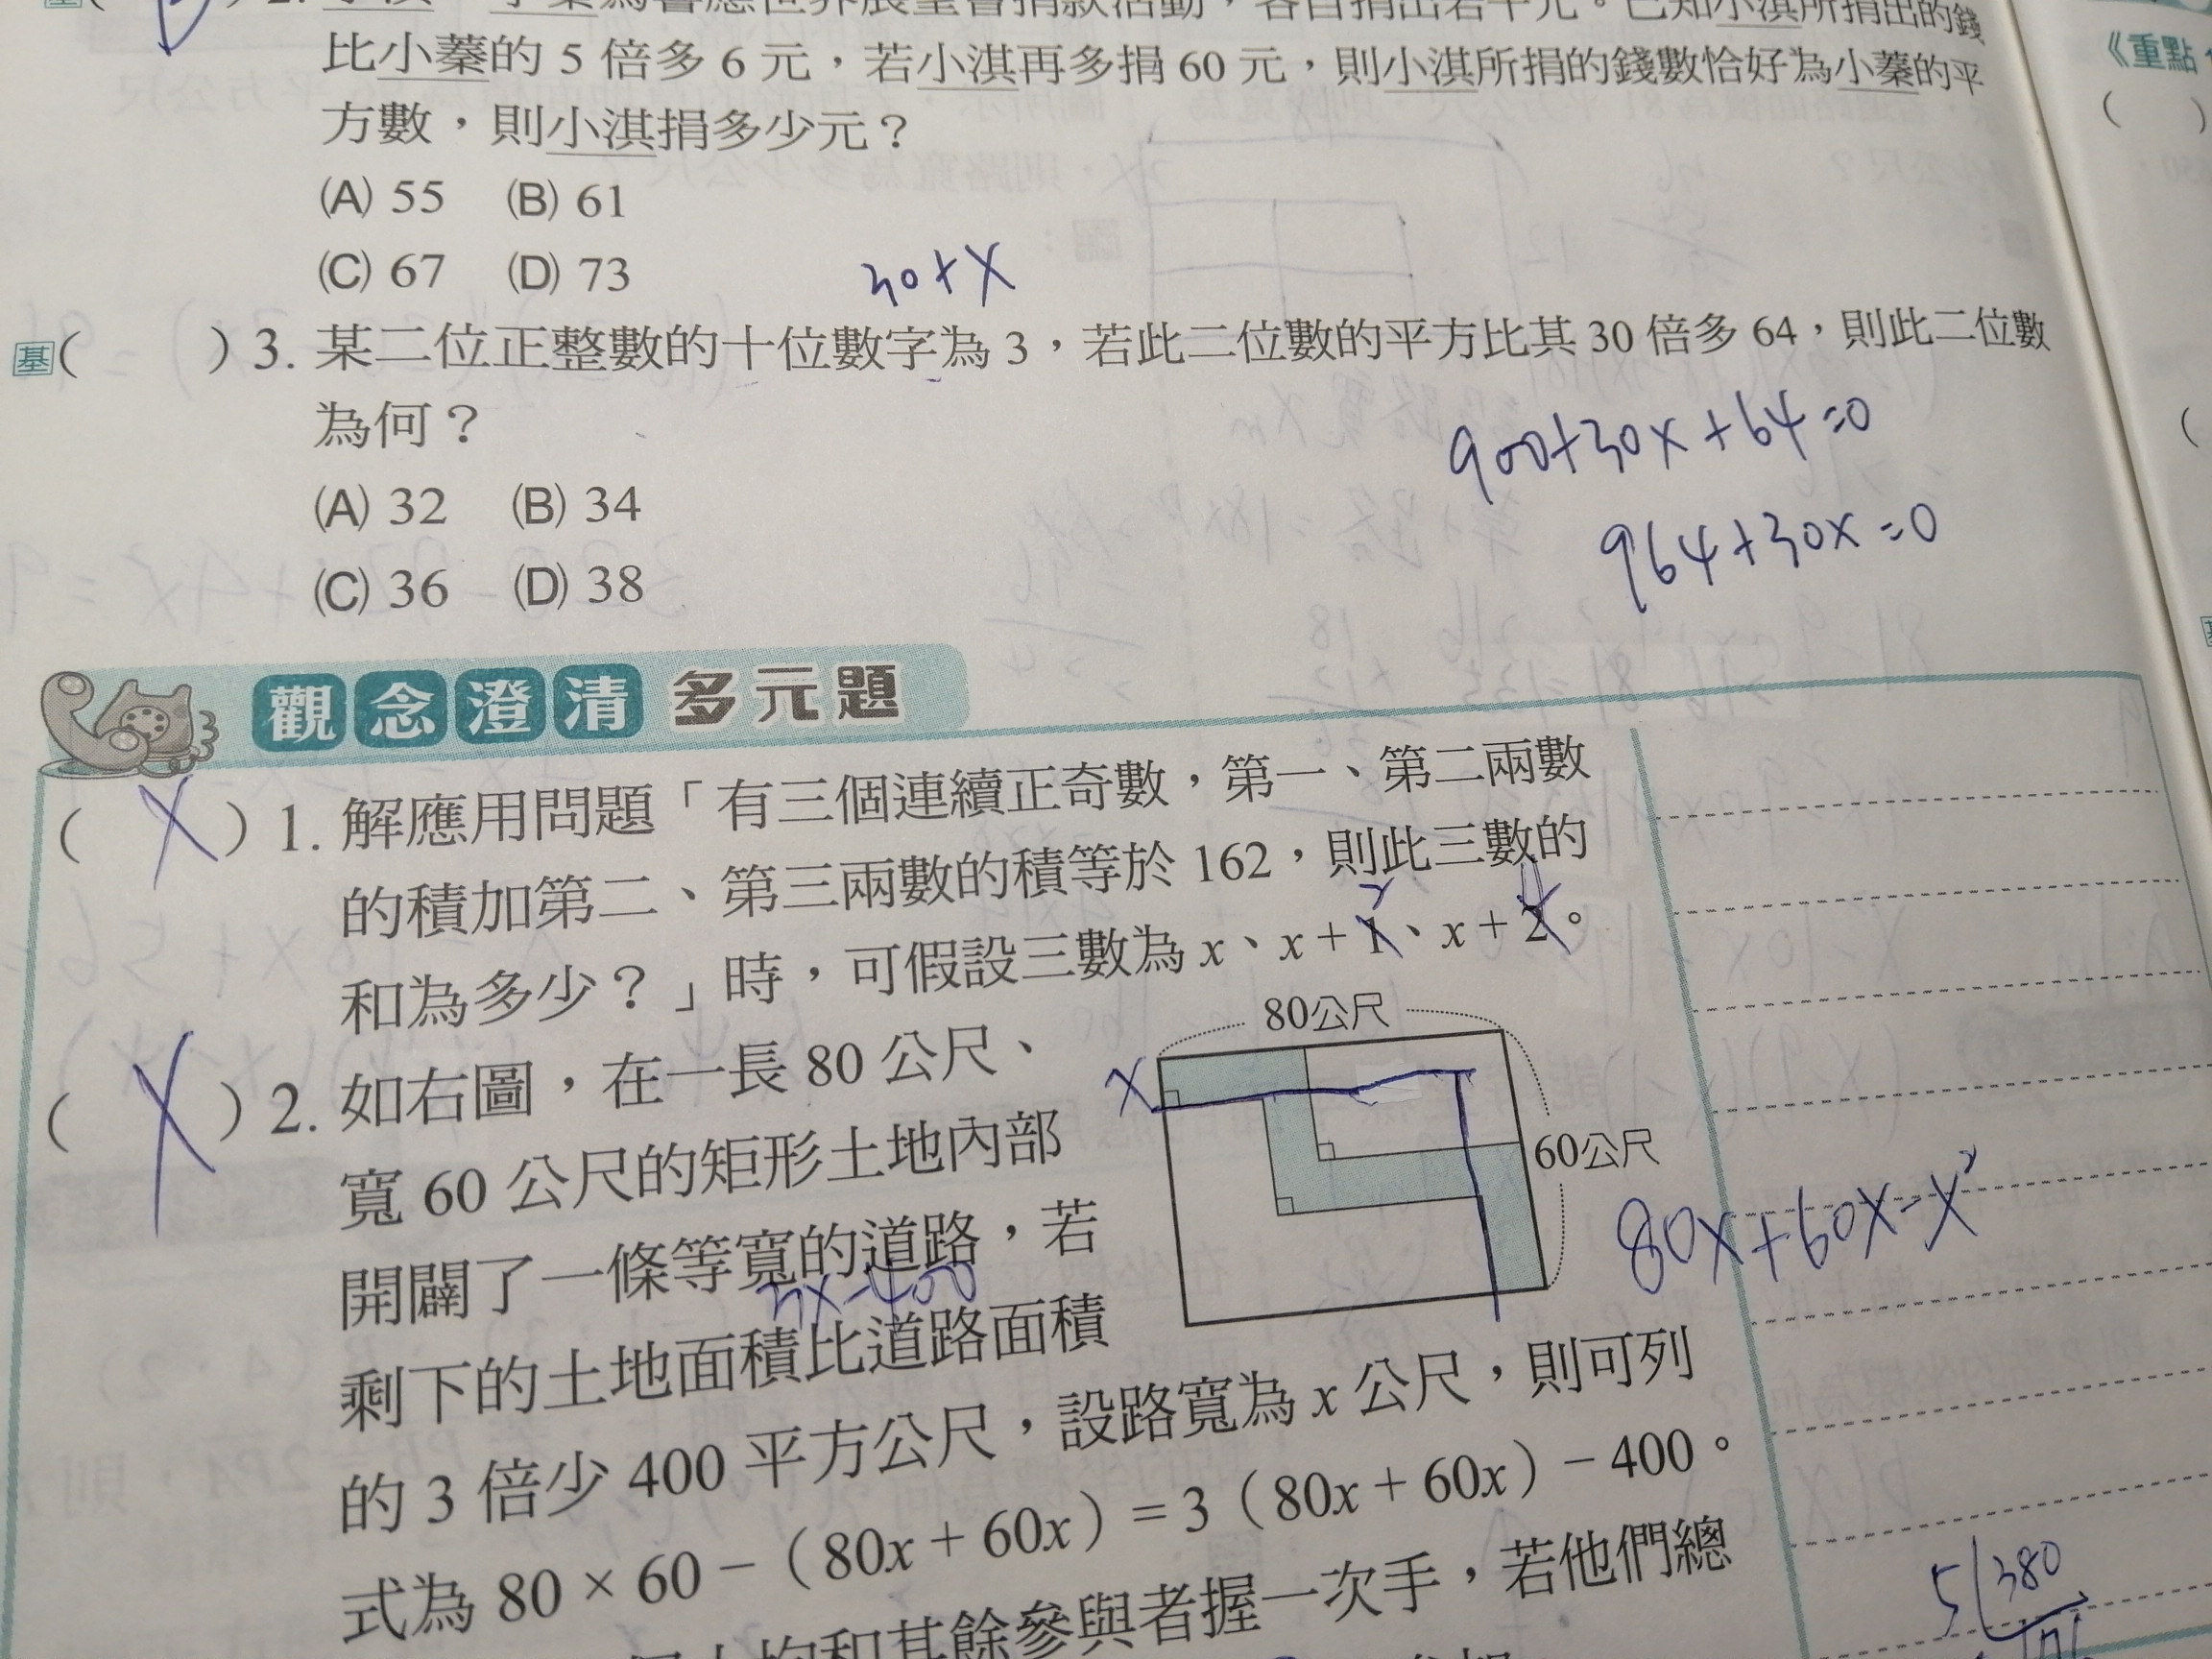 比小蓁的 5 倍多 6 元，若小淇再多捐 60 元，則小淇所捐的錢數恰好為小蓁的平
方數，則小淇捐多少元？
(A) 55 (B) 61
(C) 67 (D) 73
30+x
基( )3. 某二位正整數的十位數字為 3，若此二位數的平方比其 30 倍多 64，則此二位數
為何？
900+30x+64=0
(A) 32 (B) 34
964+30x=0
(C) 36 (D) 38
觀念澄清 多元題
( X )1. 解應用問題「有三個連續正奇數，第一、第二兩數
的積加第二、第三兩數的積等於 162，則此三數的
2 4
和為多少？」時，可假設三數為 x、x＋1、x＋2。
80公尺
( X )2. 如右圖，在一長 80 公尺、
x
寬 60 公尺的矩形土地內部
60公尺
開闢了一條等寬的道路，若
80x+60x-x²
3x-400
剩下的土地面積比道路面積
的 3 倍少 400 平方公尺，設路寬為 x 公尺，則可列
式為 80 × 60－（80x＋60x）＝3（80x＋60x）－400。
均和其餘參與者握一次手，若他們總
5 380
《重點